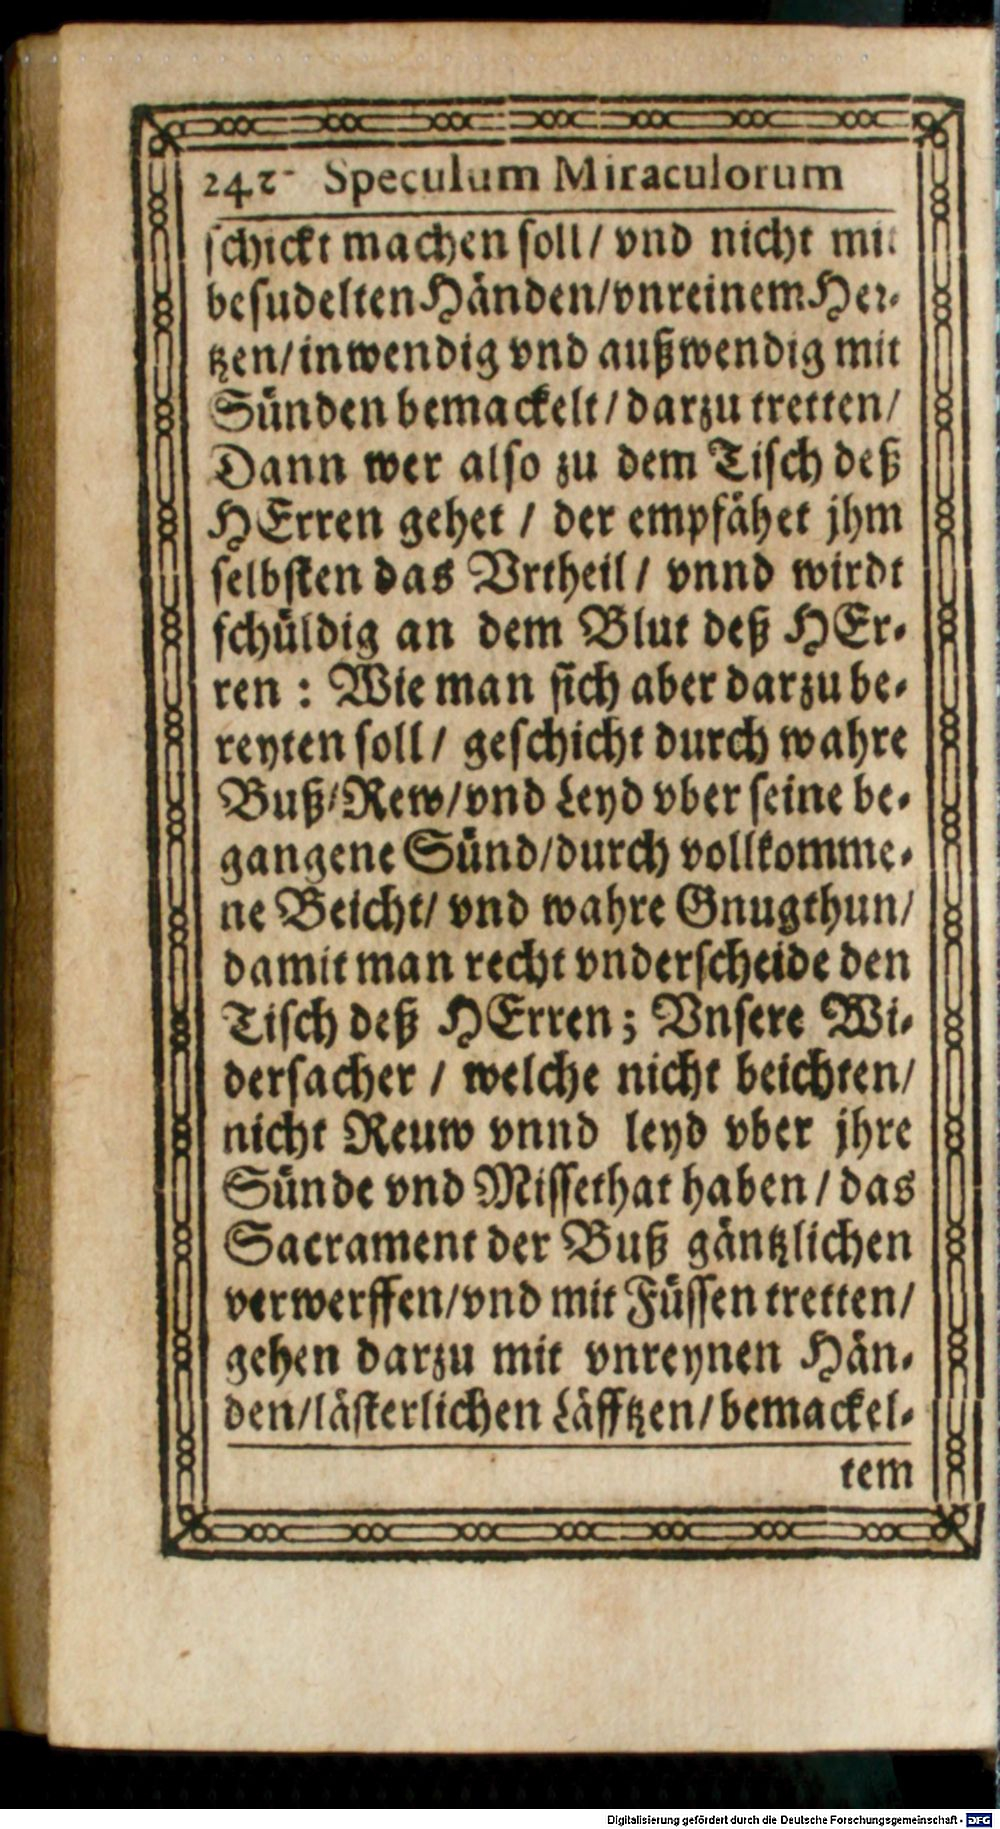 242 Speculum Miraculorum
schickt machen soll/ vnd nicht mit
besudelten Händen/vnreinem Her-
tzen/inwendig vnd außwendig mit
Sünden bemackelt/darzu tretten/
Dann wer also zu dem Tisch deß
HErren gehet / der empfähet jhm
selbsten das Vrtheil/ vnnd wirdt
schüldig an dem Blut deß HEr-
ren : Wie man sich aber darzu be-
reyten soll/ geschicht durch wahre
Buß/Rew/vnd Leyd vber seine be-
gangene Sünd/durch vollkomme-
ne Beicht/ vnd wahre Gnugthun/
damit man recht vnderscheide den
Tisch deß HErren; Vnsere Wi-
dersacher / welche nicht beichten/
nicht Reuw vnnd leyd vber jhre
Sünde vnd Missethat haben / das
Sacrament der Buß gäntzlichen
verwerffen/vnd mit Füssen tretten/
gehen darzu mit vnreynen Hän-
den/lästerlichen Läfftzen/bemackel-
tem
Digitalisierung gefördert durch die Deutsche Forschungsgemeinschaft - DFG